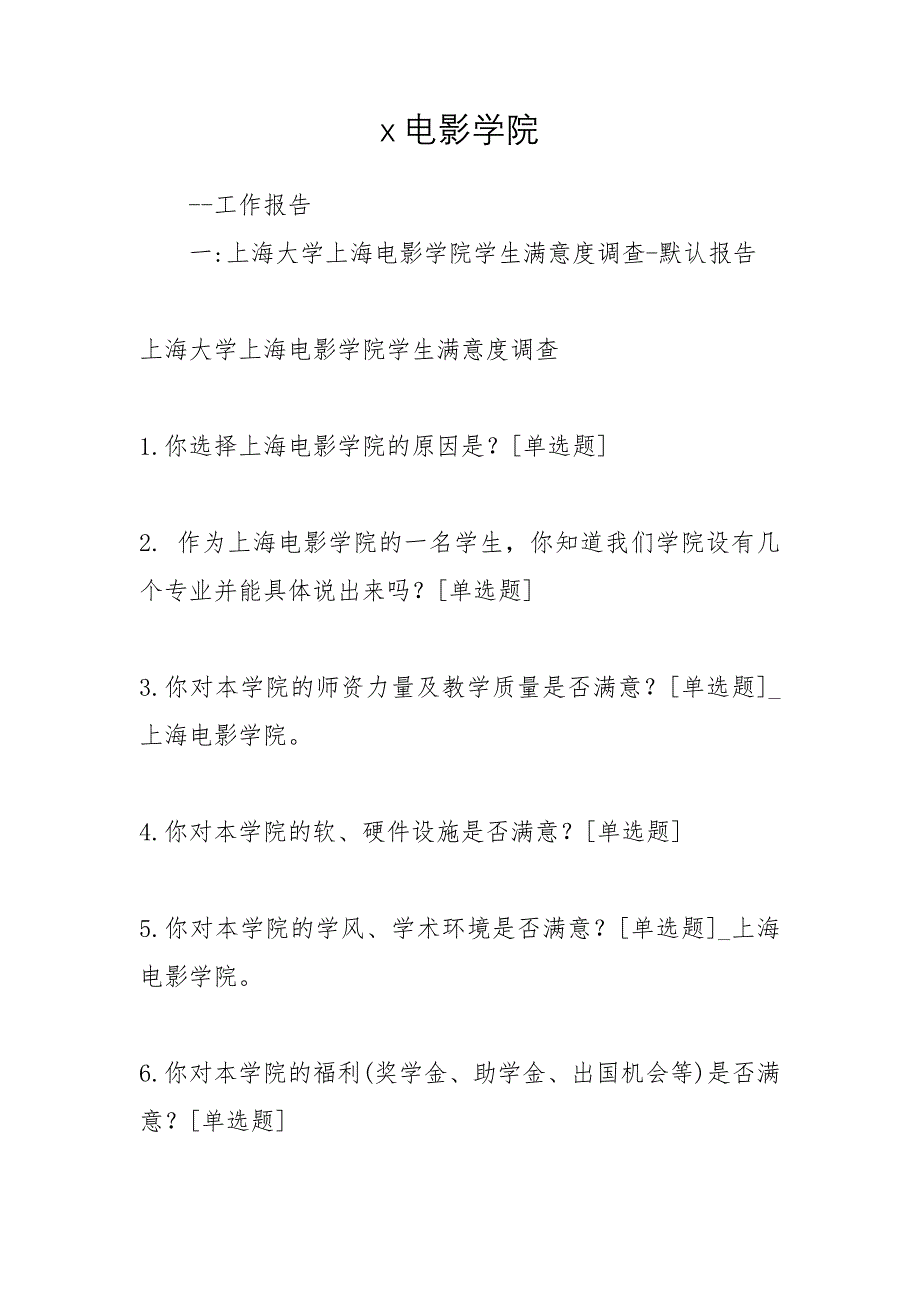 x 电影学院
--工作报告
一:上海大学上海电影学院学生满意度调查-默认报告
上海大学上海电影学院学生满意度调查
1.你选择上海电影学院的原因是？[单选题]
2. 作为上海电影学院的一名学生，你知道我们学院设有几
个专业并能具体说出来吗？[单选题]
3.你对本学院的师资力量及教学质量是否满意？[单选题]_
上海电影学院。
4.你对本学院的软、硬件设施是否满意？[单选题]
5.你对本学院的学风、学术环境是否满意？[单选题]_上海
电影学院。
6.你对本学院的福利(奖学金、助学金、出国机会等)是否满
意？[单选题]